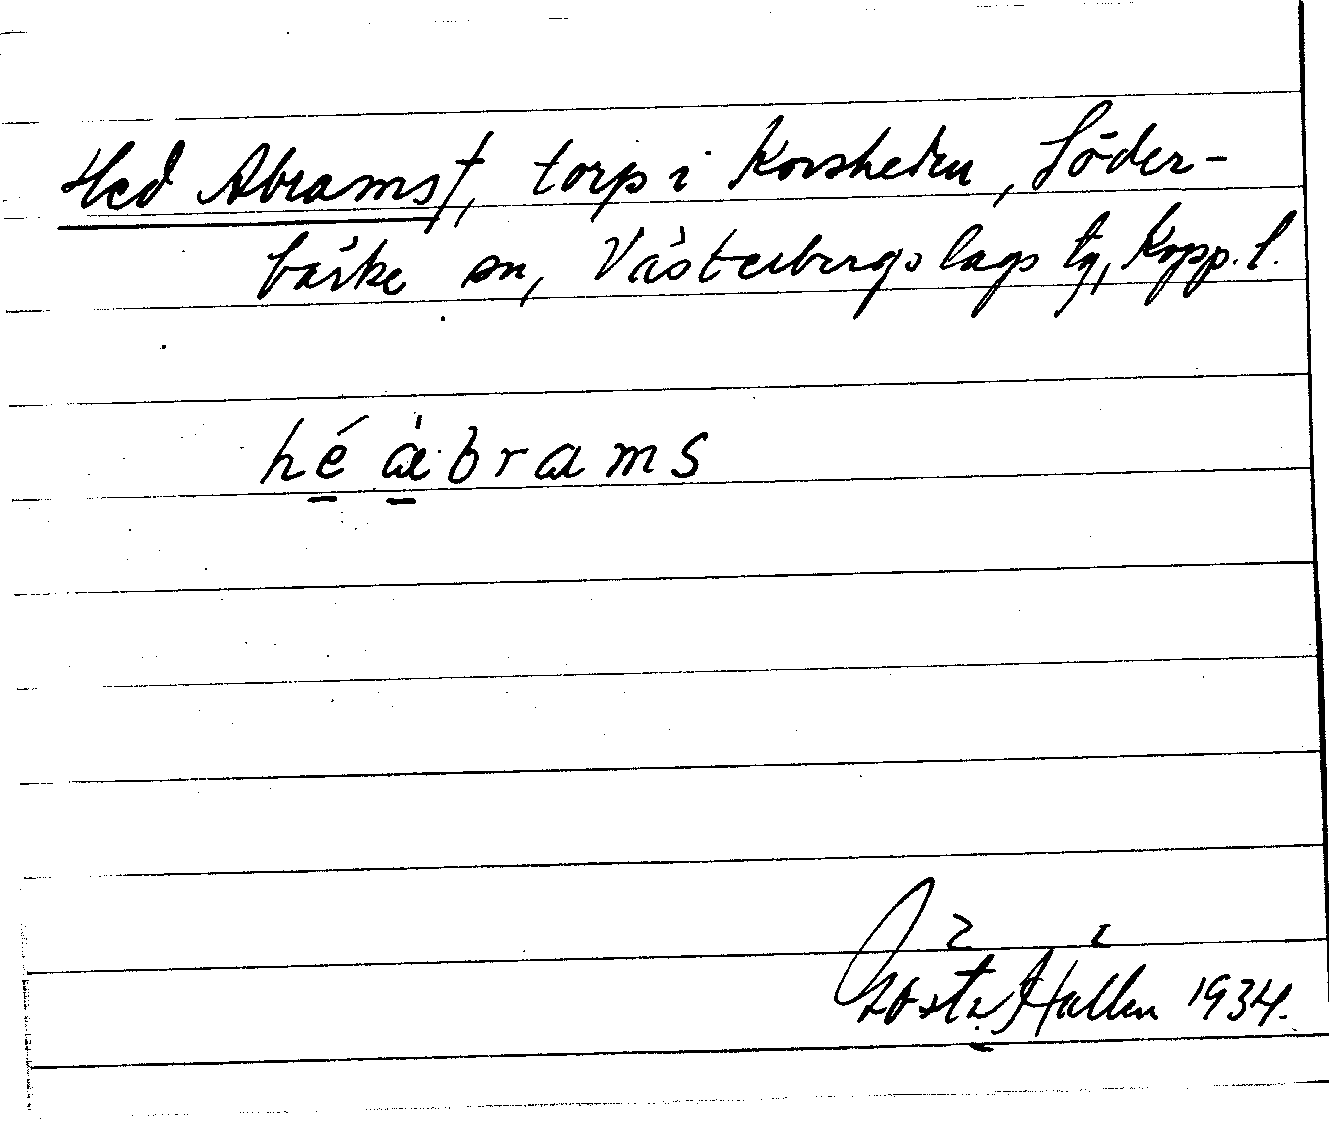 Hed Abrams†, torp i Korsheden, Söder-
bärke sn, Västerbergslags tg, Kopp. l.
hé ȧbrams
Gösta Hallén 1934.